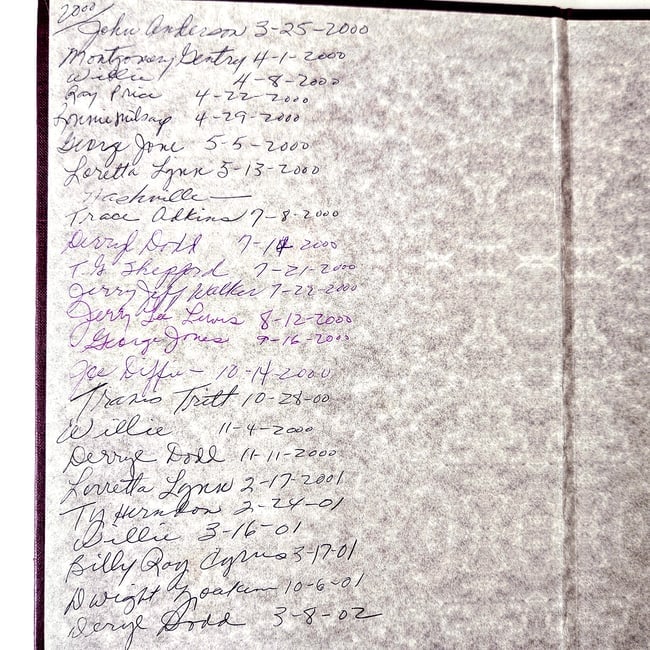 2000/
John Anderson 3-25-2000
Montgomery Gentry 4-1-2000
Willie 4-8-2000
Ray Price 4-22-2000
Ronnie Milsap 4-29-2000
George Jone 5-5-2000
Loretta Lynn 5-13-2000
Nashville —
Trace Adkins 7-8-2000
Derryl Dodd 7-14-2000
T.G. Sheppard 7-21-2000
Jerry Jeff Walker 7-22-2000
Jerry Lee Lewis 8-12-2000
George Jones 9-16-2000
Joe Diffie - 10-14-2000
Travis Tritt 10-28-00
Willie 11-4-2000
Derryl Dodd 11-11-2000
Lorretta Lynn 2-17-2001
Ty Herndon 2-24-01
Willie 3-16-01
Billy Ray Cyrus 3-17-01
Dwight Yoakum 10-6-01
Deryl Dodd 3-8-02